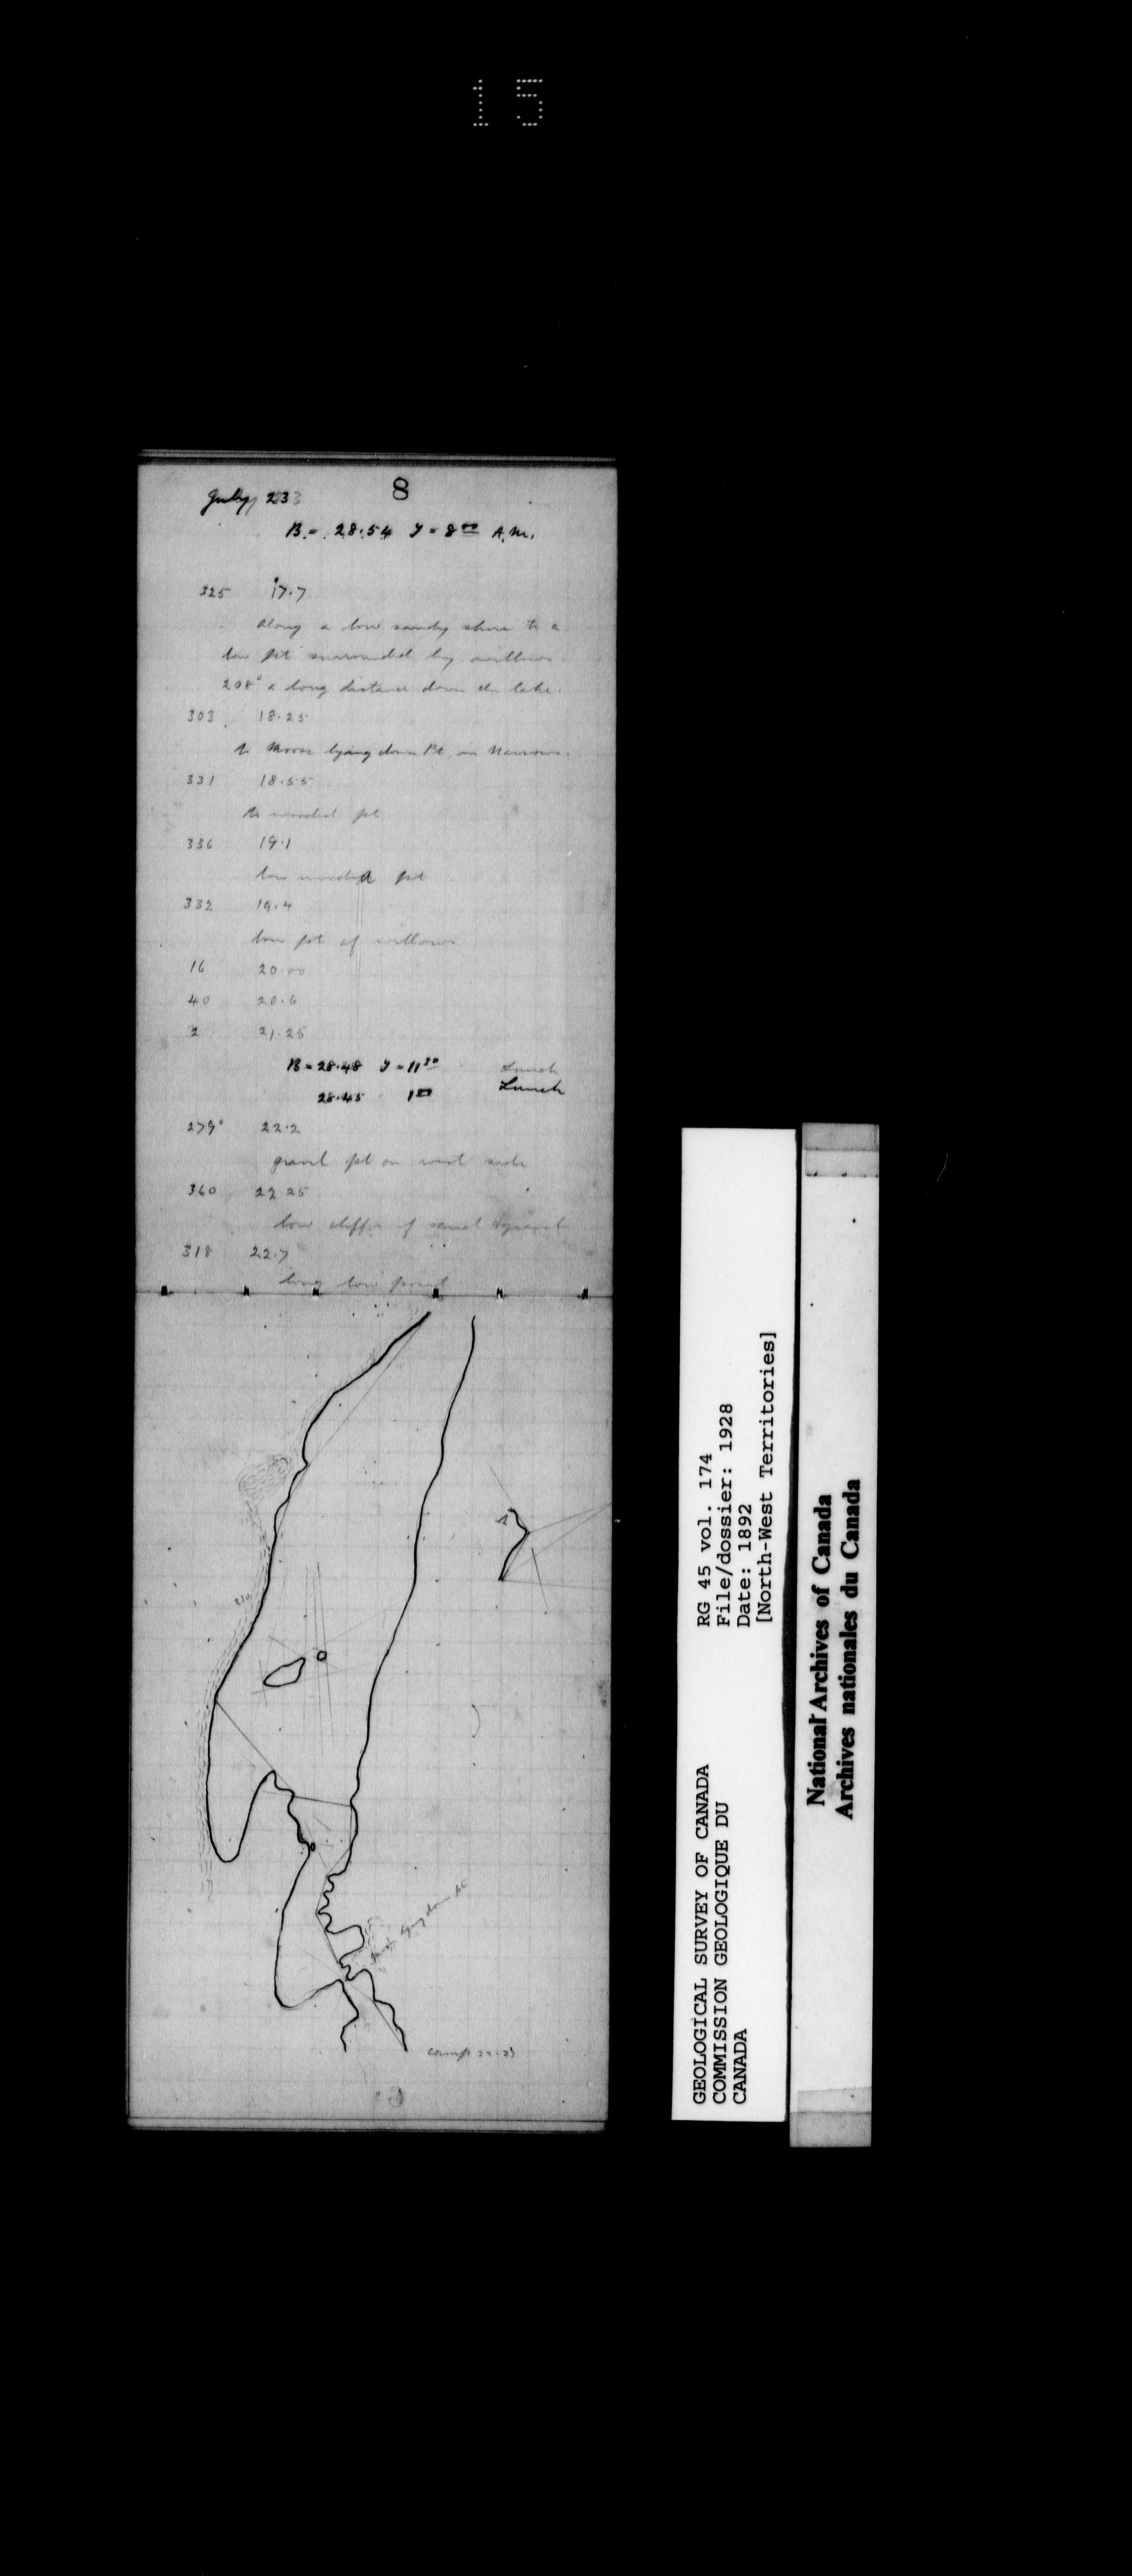 15
8
July 23
B. = 28.54 T = 8 00 A.M.
325 17.7
along a low sandy shore to a
low pt surrounded by willows.
208° a long distance down the lake.
303 18.25
to Moose lying down Pt. in Narrows.
331 18.55
to wooded pt
336 19.1
low wooded pt
332 19.4
low pt of willows
16 20.00
40 20.6
2 21.25
B = 28.48 T = 11 30 Lunch
28.45 1 00 Lunch
279° 22.2
gravel pt on west side
360 22 25
low cliffs of sand & gravel
318 22.7
long low point
Moose lying down Pt
Camp 22-23
GEOLOGICAL SURVEY OF CANADA
COMMISSION GEOLOGIQUE DU
CANADA
RG 45 vol. 174
File/dossier: 1928
Date: 1892
[North-West Territories]
National Archives of Canada
Archives nationales du Canada